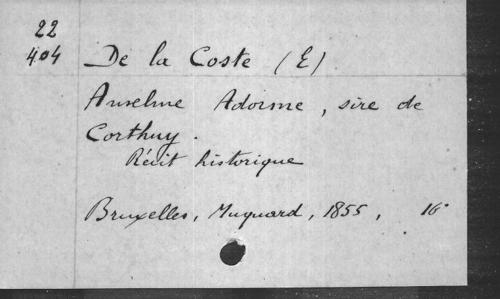 22
404
De la Coste (E)
Anselme Adorne, sire de
Corthuy.
Récit historique
Bruxelles, Muquard, 1855, 16°